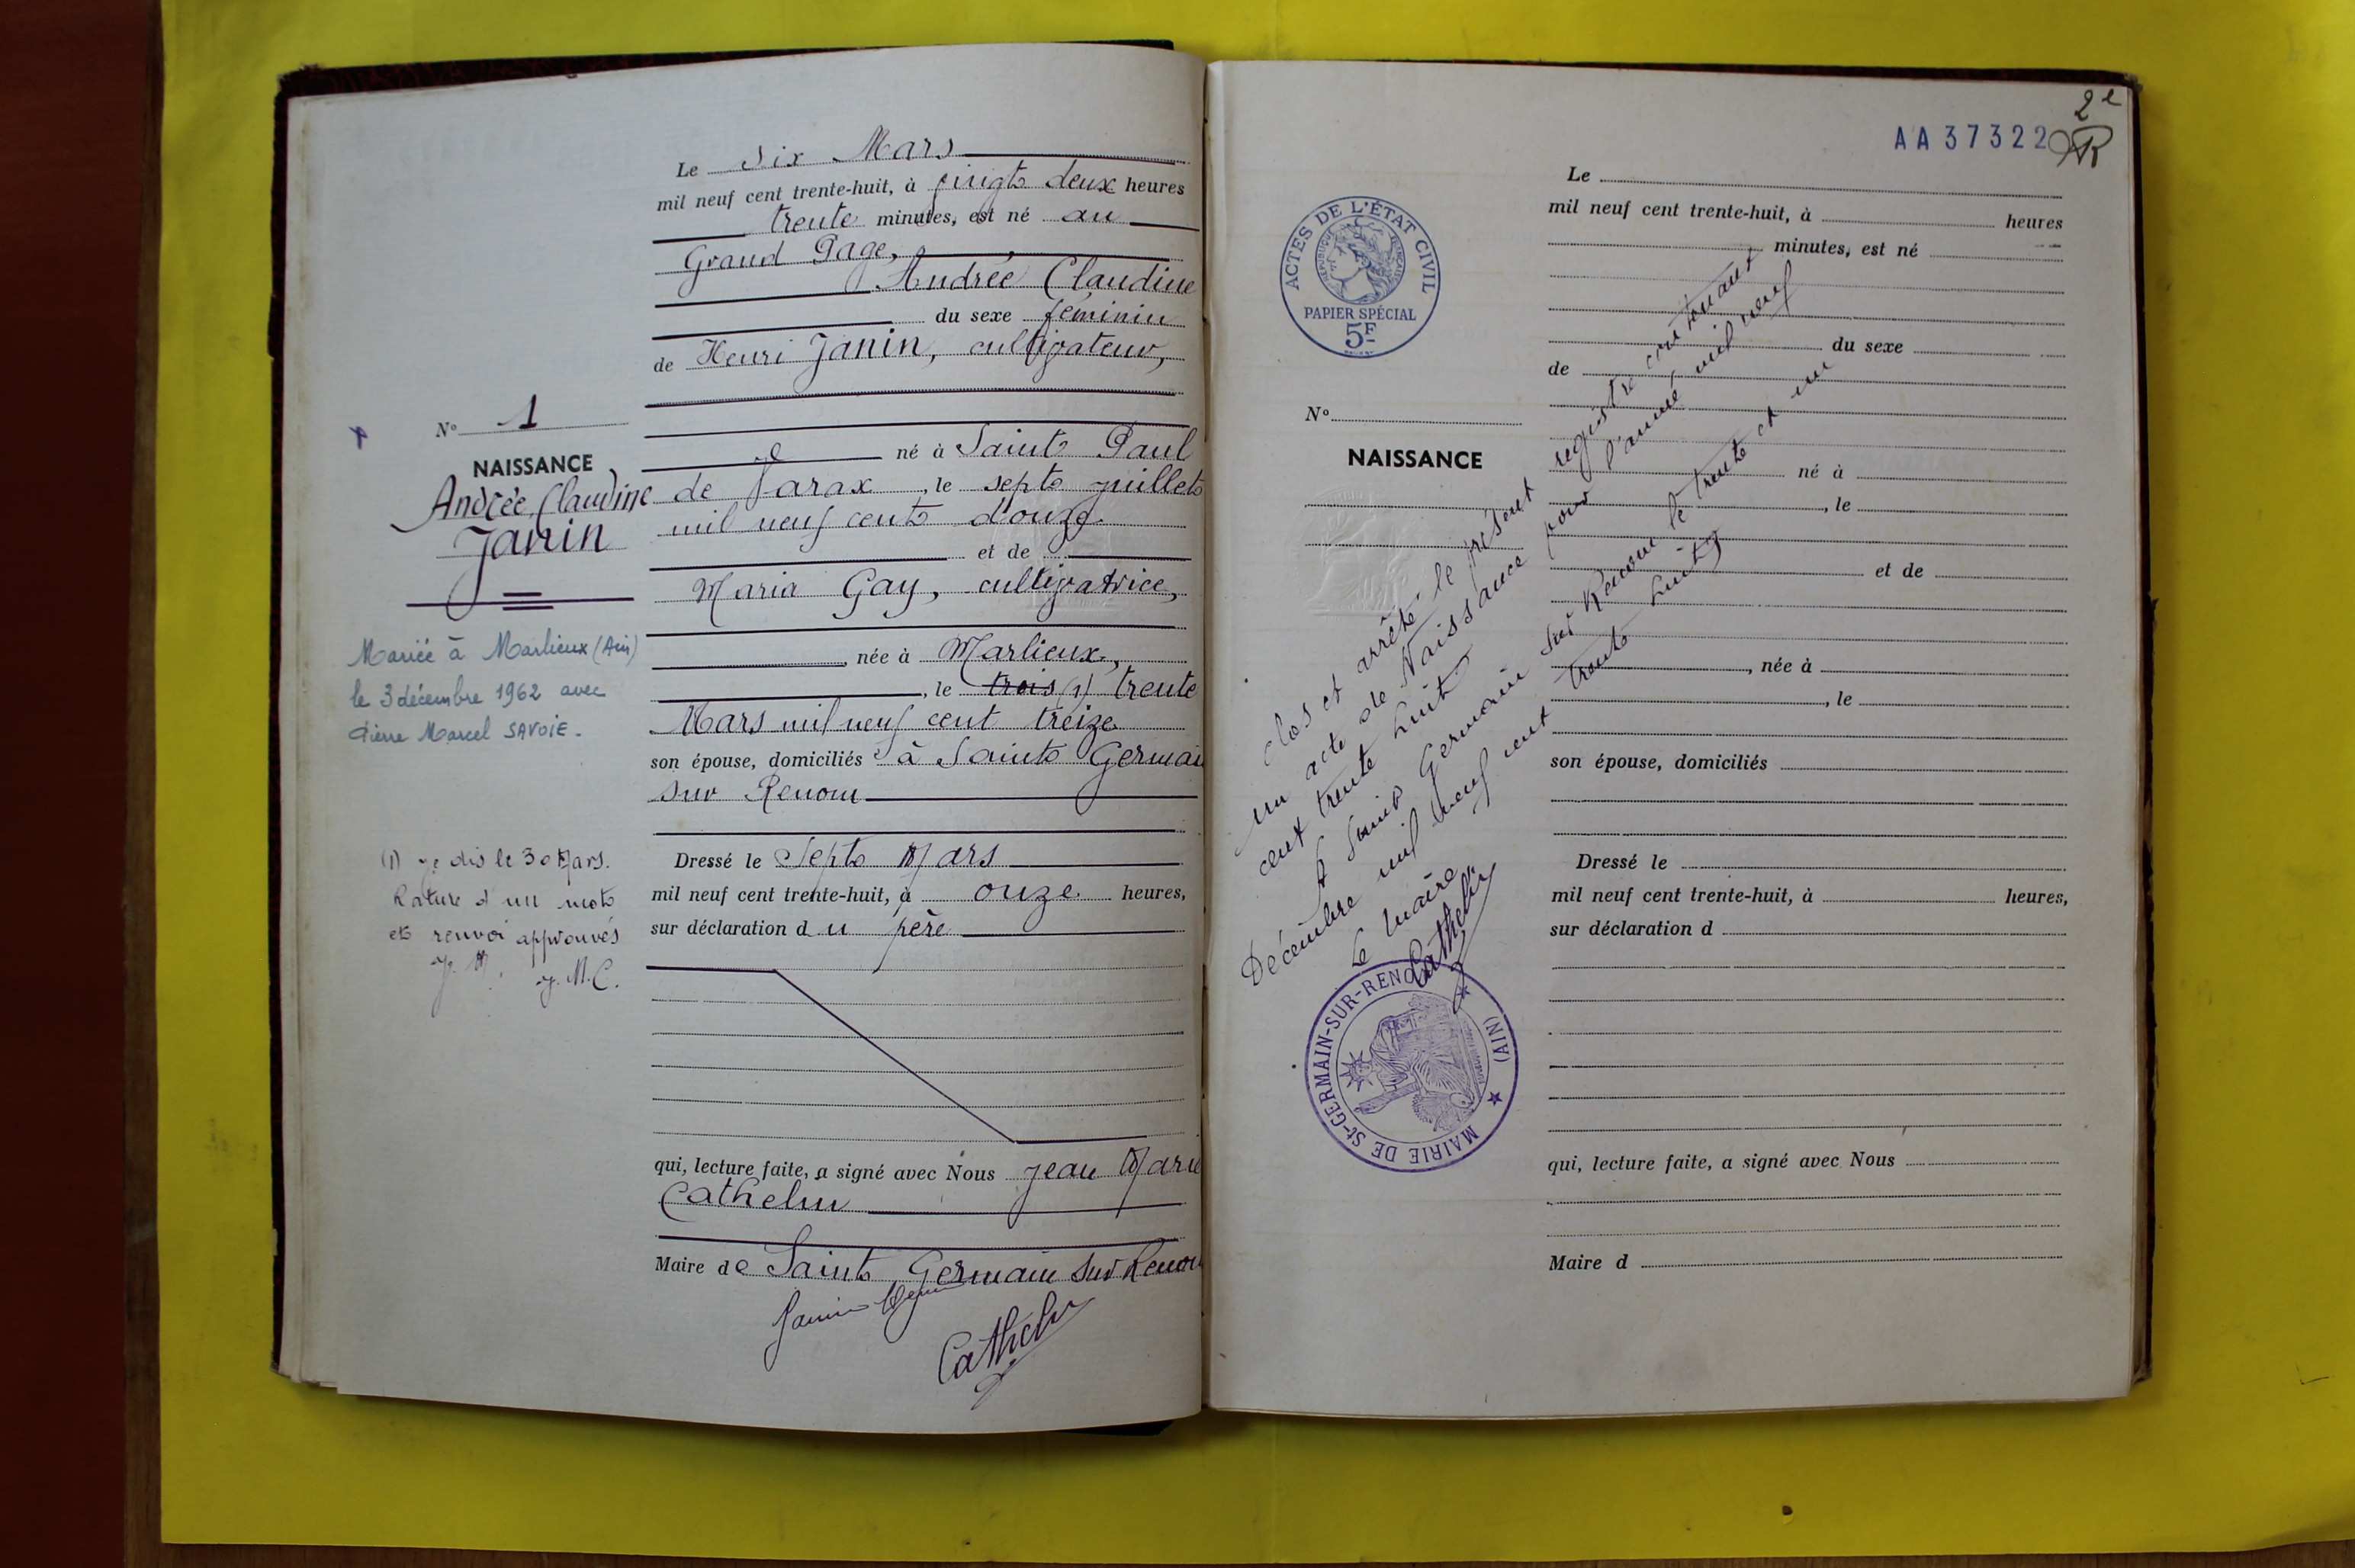 Le six Mars
mil neuf cent trente-huit, à vingt deux heures
trente minutes, est né au
Grand Page,
Andrée Claudine
du sexe féminin
de Henri Janin, cultivateur,
né à Saint Paul
de Varax, le sept juillet
mil neuf cent douze
et de
Maria Gay, cultivatrice,
, née à Marlieux,
, le trois (1) trente
Mars mil neuf cent treize
son épouse, domiciliés à Saint Germain
sur Renom
Dressé le Sept Mars
mil neuf cent trente-huit, à onze heures,
sur déclaration du père
qui, lecture faite, a signé avec Nous Jean Marie
Cathelin
Maire de Saint Germain sur Renom
Janin Henri
Cathelin
N° 1
NAISSANCE
Andrée, Claudine
Janin
Mariée à Marlieux (Ain)
le 3 décembre 1962 avec
Pierre Marcel SAVOIE.
(1) Je dis le 30 Mars.
Rature d'un mot
et renvoi approuvés
J. M. C.
2e
AA37322
ACTES DE L'ÉTAT CIVIL
RÉPUBLIQUE FRANÇAISE
PAPIER SPÉCIAL
5F
N°
NAISSANCE
Le
mil neuf cent trente-huit, à heures
minutes, est né
du sexe
de
né à
, le
et de
, née à
, le
son épouse, domiciliés
Dressé le
mil neuf cent trente-huit, à heures,
sur déclaration d
qui, lecture faite, a signé avec Nous
Maire d
Clos et arrêté le présent registre contenant
un acte de Naissance pour l'année mil neuf
cent trente huit
A Saint Germain sur Renom le trente et un
Décembre mil neuf cent trente huit
Le Maire
Cathelin
MAIRIE DE St-GERMAIN-SUR-RENOM (AIN)